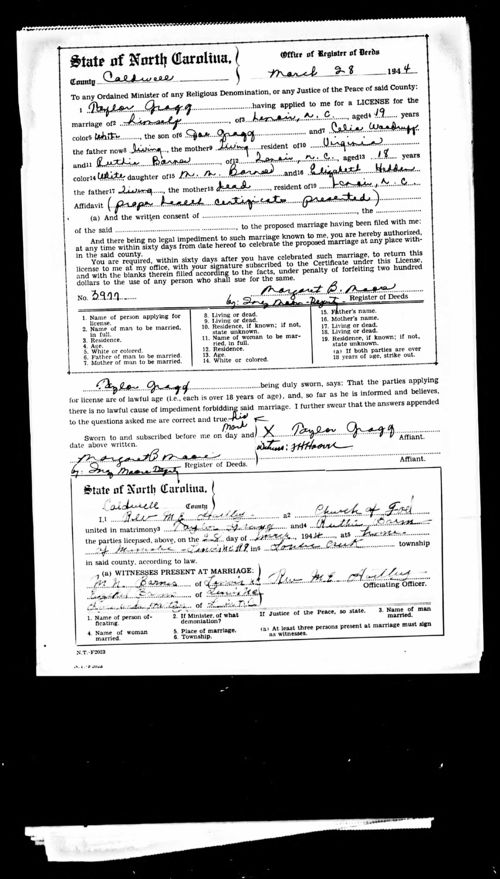 State of North Carolina,
Office of Register of Deeds
County Caldwell
March 28 1944
To any Ordained Minister of any Religious Denomination, or any Justice of the Peace of said County:
1 Taylor Gragg having applied to me for a LICENSE for the
marriage of2 himself of3 Lenoir, N.C. aged4 19 years
color5 White, the son of6 Joe Gragg and7 Celia Woodruff
the father now8 living, the mother9 living resident of10 Virginia
and11 Ruthie Barnes of12 Lenoir, N.C. aged13 18 years
color14 White daughter of15 M. M. Barnes and16 Elizabeth
the father17 living, the mother18 dead, resident of19 Lenoir, N.C.
Affidavit (proper health certificate presented)
(a) And the written consent of , the
of the said , to the proposed marriage having been filed with me:
And there being no legal impediment to such marriage known to me, you are hereby authorized,
at any time within sixty days from date hereof to celebrate the proposed marriage at any place with-
in the said county.
You are required, within sixty days after you have celebrated such marriage, to return this
license to me at my office, with your signature subscribed to the Certificate under this License,
and with the blanks therein filed according to the facts, under penalty of forfeiting two hundred
dollars to the use of any person who shall sue for the same.
No. 3977
Margaret B. Moore
by: Inez Moore Deputy Register of Deeds
1. Name of person applying for license.
2. Name of man to be married, in full.
3. Residence.
4. Age.
5. White or colored.
6. Father of man to be married.
7. Mother of man to be married.
8. Living or dead.
9. Living or dead.
10. Residence, if known; if not, state unknown.
11. Name of woman to be married, in full.
12. Residence.
13. Age.
14. White or colored.
15. Father's name.
16. Mother's name.
17. Living or dead.
18. Living or dead.
19. Residence, if known; if not, state unknown.
(a) If both parties are over 18 years of age, strike out.
Taylor Gragg being duly sworn, says: That the parties applying
for license are of lawful age (i.e., each is over 18 years of age), and, so far as he is informed and believes,
there is no lawful cause of impediment forbidding said marriage. I further swear that the answers appended
to the questions asked me are correct and true.
his
mark
Sworn to and subscribed before me on day and
date above written.
X Taylor Gragg
Affiant.
Witness: Moore
Margaret B Moore
by: Inez Moore Deputy Register of Deeds.
Affiant.
State of North Carolina,
Caldwell County
I,1 Rev M.E. a2 Church of God
united in matrimony3 Taylor Gragg and4 Ruthie
the parties licensed, above, on the 28 day of 1944, at5 home
of in6 Creek township
in said county, according to law.
(a) WITNESSES PRESENT AT MARRIAGE:
M. M. Barnes of Lenoir
Rev M.E.
Officiating Officer.
of Lenoir
of
1. Name of person officating.
2. If Minister, of what demoniation?
If Justice of the Peace, so state.
3. Name of man married.
4. Name of woman married.
5. Place of marriage.
6. Township.
(a) At least three persons present at marriage must sign as witnesses.
N.T.-F2023